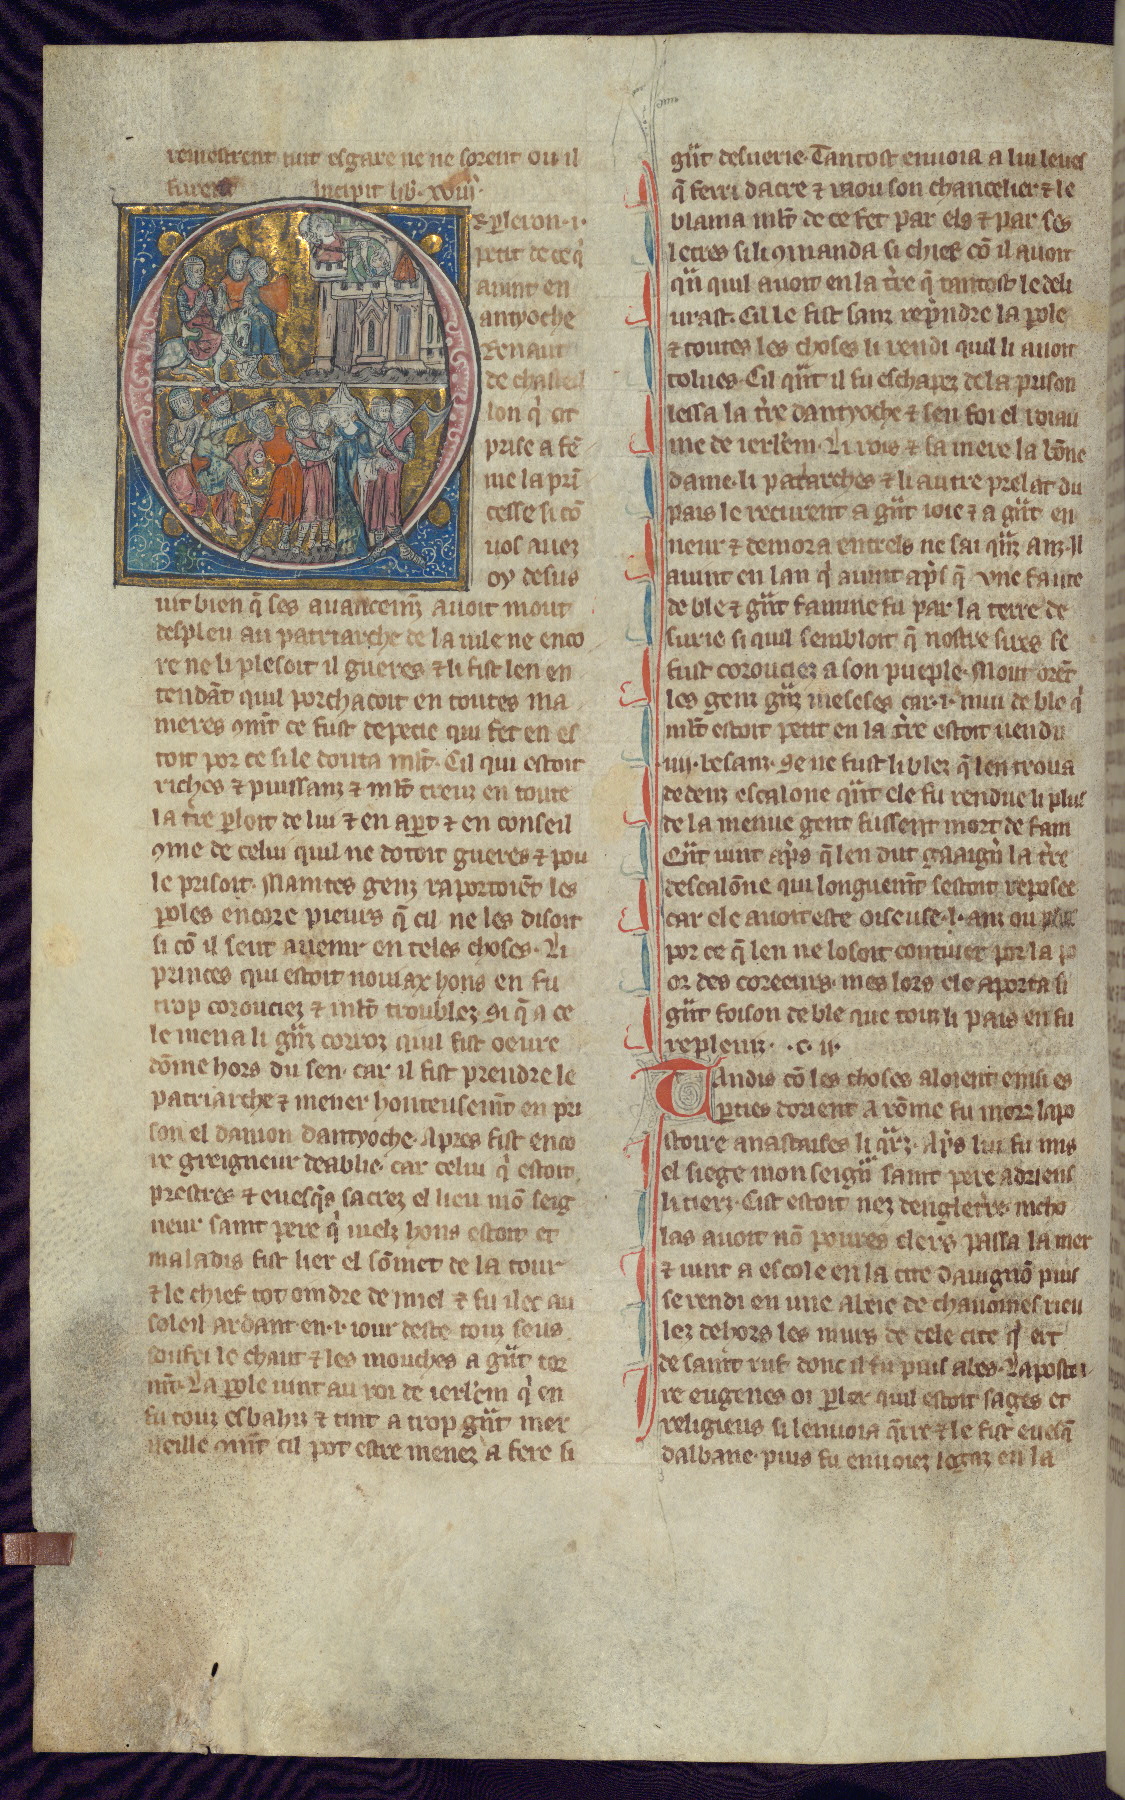 remestrent nut esgare ne ne sorent ou il
furent Incipit lib. xviii.
Or perleron .i.
petit de ce q̃
avint en
antyoche
Renaut
de chasteil
lon q̃ ot
prise a fẽ
me la prĩ
cesse si cõ
vos avez
oy desus
vit bien q̃ ses avancemẽz avoit mout
despleu au patriarche de la vile ne enco
re ne li plesoit il gueres ⁊ li fist len en
tendãt quil porchacoit en toutes ma
nieres ꝯmẽt ce fust depecie qui fet en es
toit por ce si le douta mlt̃. Cil qui estoit
riches ⁊ puissanz ⁊ mlt̃ creuz en toute
la tr̃e ꝑloit de lui ⁊ en apert ⁊ en conseil
ꝯme de celui quil ne dotoit gueres ⁊ pou
le prisoit. Maintes genz raportoiẽt les
ꝑoles encore pieurs q̃ cil ne les disoit
si cõ il seut avenir en teles choses. Li
princes qui estoit noviax hons en fu
trop corouciez ⁊ mlt̃ troublez. Si q̃ a ce
le mena li gr̃nz corroz quil fist oevre
dõme hors du sen. car il fist prendre le
patriarche ⁊ mener honteusemẽt en pri
son el danion dantyoche. Apres fist enco
re greigneur deablie. car celui q̃ estoit
prestres ⁊ evesq̃s sacrez el lieu mõ seig
neur saint pere q̃ vielz hons estoit et
maladis fist lier el sõmet de la tour
⁊ le chief tot oindre de miel ⁊ fu ilec au
soleil ardant en .i. iour deste touz seus
soufri le chaut ⁊ les mouches a gr̃nt tor
mẽt. La ꝑole vint au roi de ierlẽm q̃ en
fu touz esbahiz ⁊ tint a trop gr̃nt mer
veille ꝯmẽt cil pot estre menez a fere si
gr̃nt desverie. Tantost envoia a lui leves
q̃ ferri dacre ⁊ raou son chancelier ⁊ le
blama mlt̃ de ce fet par els ⁊ par ses
letres si li ꝯmanda si chier cõ il avoit
qñ quil avoit en la tr̃e q̃ tantost le deli
vrast. Cil le fist sanz rep̃ndre la ꝑole
⁊ toutes les choses li rendi quil li avoit
tolues. Cil qñt il fu eschapez de la prison
lessa la tr̃e dantyoche ⁊ sen foi el roiau
me de ierlẽm. Li rois ⁊ sa mere la bõne
dame. li patarches ⁊ li autre prelat du
pais le recurent a gr̃nt ioie ⁊ a gr̃nt en
neur ⁊ demora entrels ne sai qñz anz. Il
avint en lan q̃ avint ap̃s q̃ une faute
de ble ⁊ gr̃nt famine fu par la terre de
surie si quil sembloit q̃ nostre sires se
fust corouciez a son pueple. Mout orẽt
les genz gr̃nz meseses car .i. mui de ble q̃
mlt̃ estoit petit en la tr̃e estoit vendu
.iiij. besanz. Se ne fust li blez q̃ len trova
dedenz escalone qñt ele fu rendue li plus
de la menue gent fussent mort de fam
Qñt vint ap̃s q̃ len dut gaaigñ la tr̃e
descalõne qui longuemẽt sestoit reposee
car ele avoit este oiseuse .l. anz ou plus
por ce q̃ len ne losoit coutiver por la p
or des coreeurs. mes lors ele aporta si
gr̃nt foison de ble que touz li pais en fu
repleniz. .c. ii.
Tandis cõ les choses aloient ensi es
ꝑties dorient A rõme fu morz lapo
stoire anastaises li qr̃z. Ap̃s lui fu mis
el siege monseignr̃ saint pere adriens
li tierz. Cist estoit nez dengletr̃re. nicho
las avoit nõ povres clers passa la mer
⁊ vint a escole en la cite davignõ puis
se rendi en une abeie de chanoines rieu
lez dehors les murs de cele cite q̃ ert
de saint ruf. donc il fu puis abes. Lapostoi
re eugenes oi ꝑler quil estoit sages et
religieus si lenvoia q̃rre ⁊ le fist evesq̃
dalbane. puis fu envoiez legaz en la